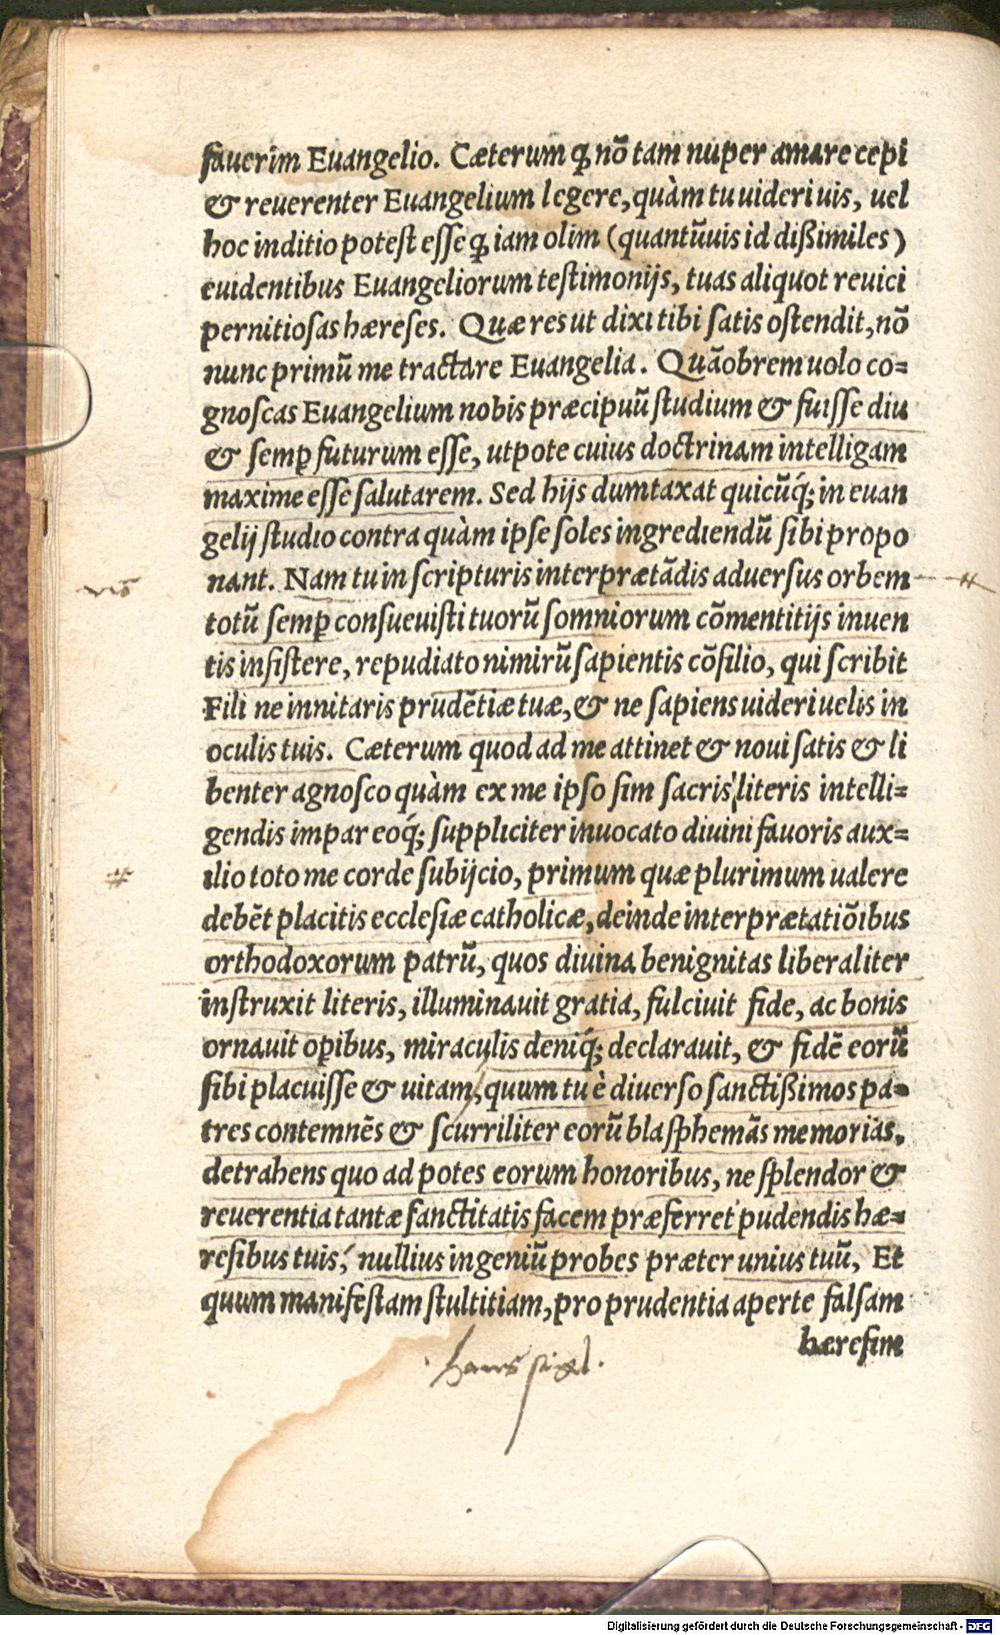 fauerim Euangelio. Cæterum ꝙ nõ tam nuper amare cepi
& reuerenter Euangelium legere, quàm tu uideri uis, uel
hoc inditio potest esse ꝙ iam olim (quantũuis id dißimiles)
euidentibus Euangeliorum testimonijs, tuas aliquot reuici
pernitiosas hæreses. Quæ res ut dixi tibi satis ostendit, nõ
nunc primũ me tractare Euangelia. Quãobrem uolo co=
gnoscas Euangelium nobis præcipuũ studium & fuisse diu
& semꝑ futurum esse, utpote cuius doctrinam intelligam
maxime esse salutarem. Sed hijs dumtaxat quicũq́; in euan
gelij studio contra quàm ipse soles ingrediendũ sibi propo
nant. Nam tu in scripturis interprætãdis aduersus orbem
totũ semꝑ consueuisti tuorũ somniorum cõmentitijs inuen
tis insistere, repudiato nimirũ sapientis cõsilio, qui scribit
Fili ne innitaris prudẽtiæ tuæ, & ne sapiens uideri uelis in
oculis tuis. Cæterum quod ad me attinet & noui satis & li
benter agnosco quàm ex me ipso sim sacris literis intelli=
gendis impar eoq́; suppliciter inuocato diuini fauoris aux=
ilio toto me corde subijcio, primum quæ plurimum ualere
debẽt placitis ecclesiæ catholicæ, deinde interprætatiõibus
orthodoxorum patrũ, quos diuina benignitas liberaliter
instruxit literis, illuminauit gratia, fulciuit fide, ac bonis
ornauit oꝑibus, miraculis deniq́; declarauit, & fidẽ eorũ
sibi placuisse & uitam, quum tu è diuerso sanctißimos pa=
tres contemnẽs & scurriliter eorũ blasphemãs memorias,
detrahens quo ad potes eorum honoribus, ne splendor &
reuerentia tantæ sanctitatis facem præferret pudendis hæ=
resibus tuis, nullius ingeniũ probes præter unius tuũ, Et
quum manifestam stultitiam, pro prudentia aperte falsam
hæresim
Digitalisierung gefördert durch die Deutsche Forschungsgemeinschaft - DFG